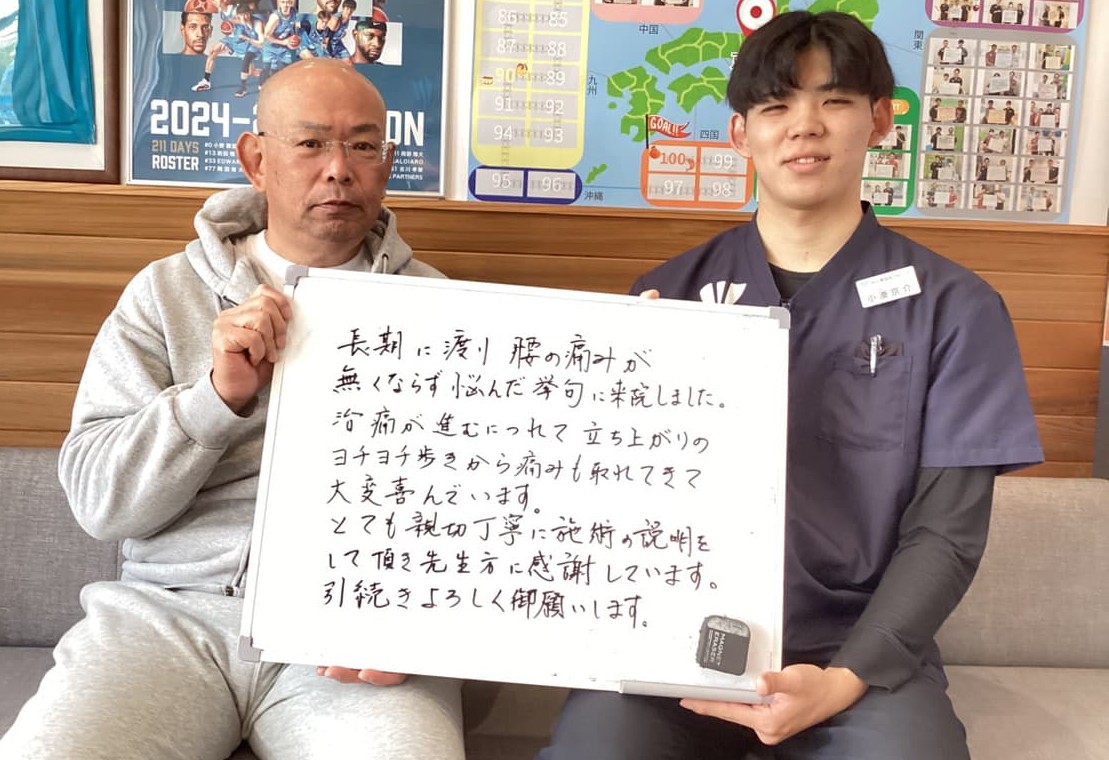 2024-2
ON
211 DAYS
ROSTER
PARTNERS
中国
九州
四国
沖縄
関東
86
85
87
88
90
89
91
92
94
93
95
96
GOAL!!
100
99
97
98
小湊京介
長期に渡り 腰の痛みが
無くならず悩んだ挙句に来院しました。
治痛が進むにつれて立ち上がりの
ヨチヨチ歩きから痛みも取れてきて
大変喜んでいます。
とても親切丁寧に施術の説明を
して頂き先生方に感謝しています。
引続きよろしく御願いします。
MAGNET
ERASER